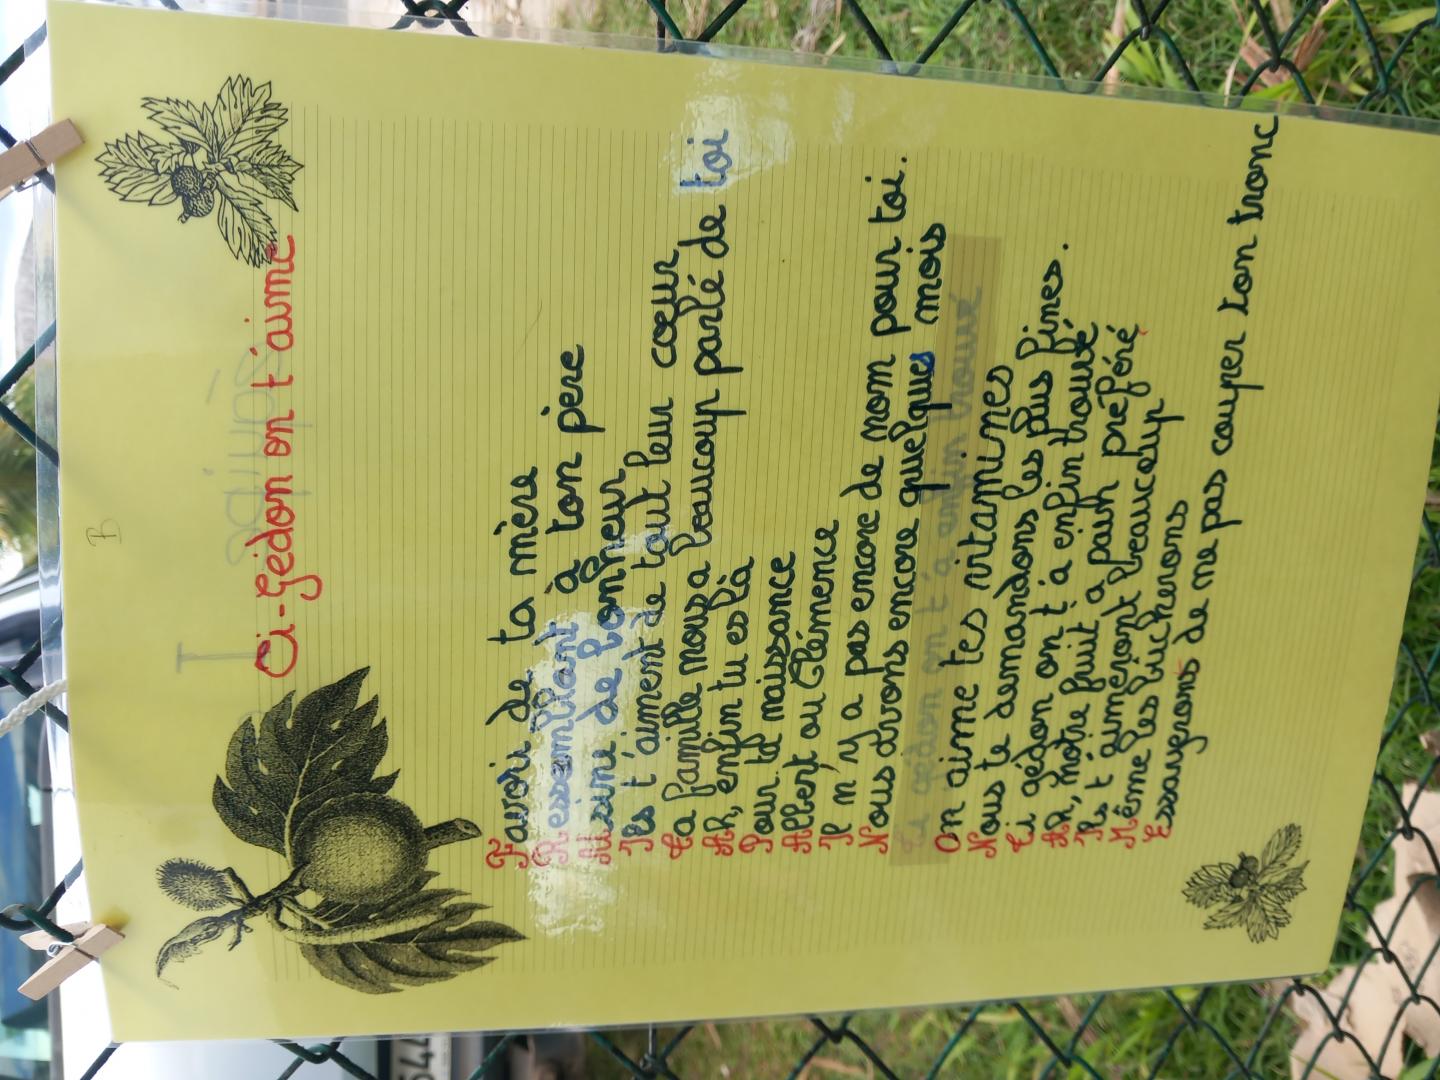 B
Ti-Gédon on t'aime
Favori de ta mère
Ressemblant à ton père
Usine de bonheur
Ils t'aiment de tout leur cœur
La famille nous a beaucoup parlé de toi
Ah, enfin tu es là
Pour ta naissance
Albert ou Clémence
Il n'y a pas encore de nom pour toi.
Nous avons encore quelques mois
Ti gédon on t'a enfin trouvé
On aime tes vitamines
Nous te demandons les plus fines.
Ti gédon on t'à enfin trouvé
Ah, notre fruit a pain préféré
Ils t'aimeront beaucoup
Même les bûcherons
Essayerons de ne pas couper ton tronc